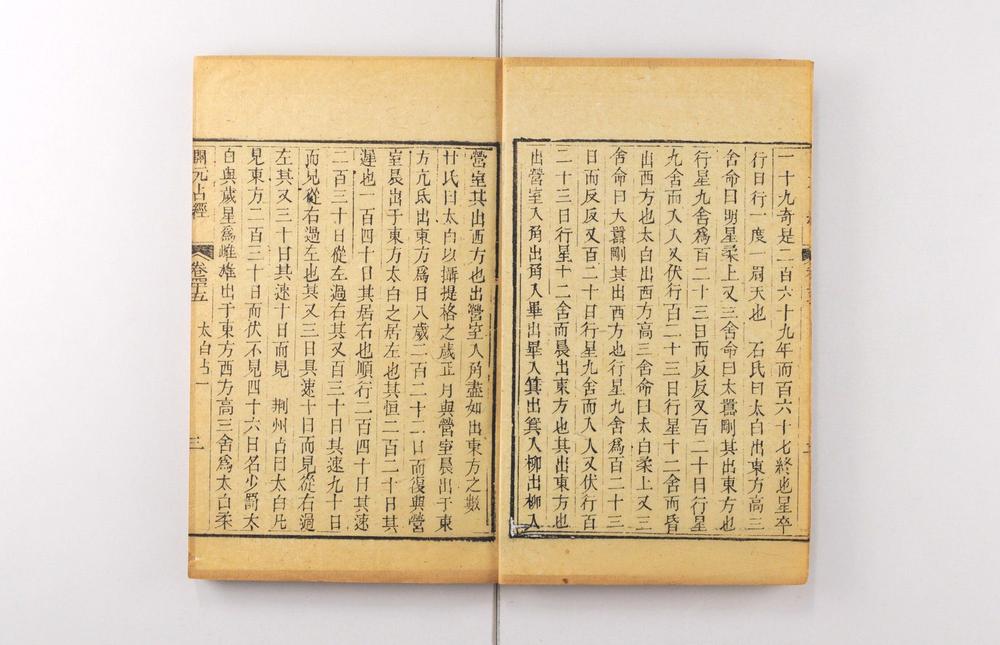 一十九奇是二百六十九年而百六十七終也星卒
行日行一度一周天也　石氏曰太白出東方高三
舍命曰明星柔上又三舍命曰太嚻剛其出東方也
行星九舍爲百二十三日而反反又百二十日行星
九舍而入入又伏行百二十三日行星十二舍而昏
出西方也太白出西方高三舍命曰太白柔上又三
舍命曰大嚻剛其出西方也行星九舍爲百二十三
日而反反又百二十日行星九舍而入入又伏行百
二十三日行星十二舍而晨出東方也其出東方也
出營室入角出角入畢出畢入箕出箕入柳出柳入
營室其出西方也出營室入角盡如出東方之數
甘氏曰太白以攝提格之歲正月與營室晨出于東
方亢氐出東方爲日八歲二百二十二日而復與營
室晨出于東方太白之居左也其恒二百二十日其
遲也一百四十日其居右也順行二百四十日其速
二百三十日從左過右其又百三十日其速九十日
而見從右過左也其又三日其速十日而見從右過
左其又三十日其速十日而見　荆州占曰太白凡
見東方二百三十日而伏不見四十六日名少罰太
白與歲星爲雌雄出于東方西方高三舍爲太白柔
開元占經　卷四十五　太白占一　三